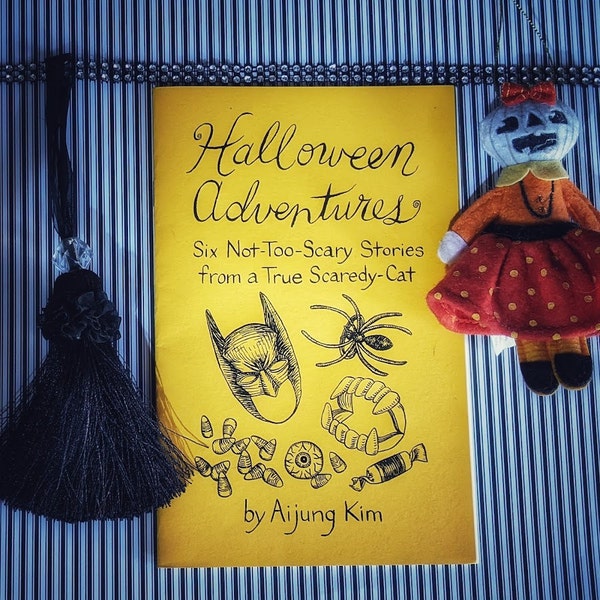 Halloween
Adventures
Six Not-Too-Scary Stories
from a True Scaredy-Cat
by Aijung Kim